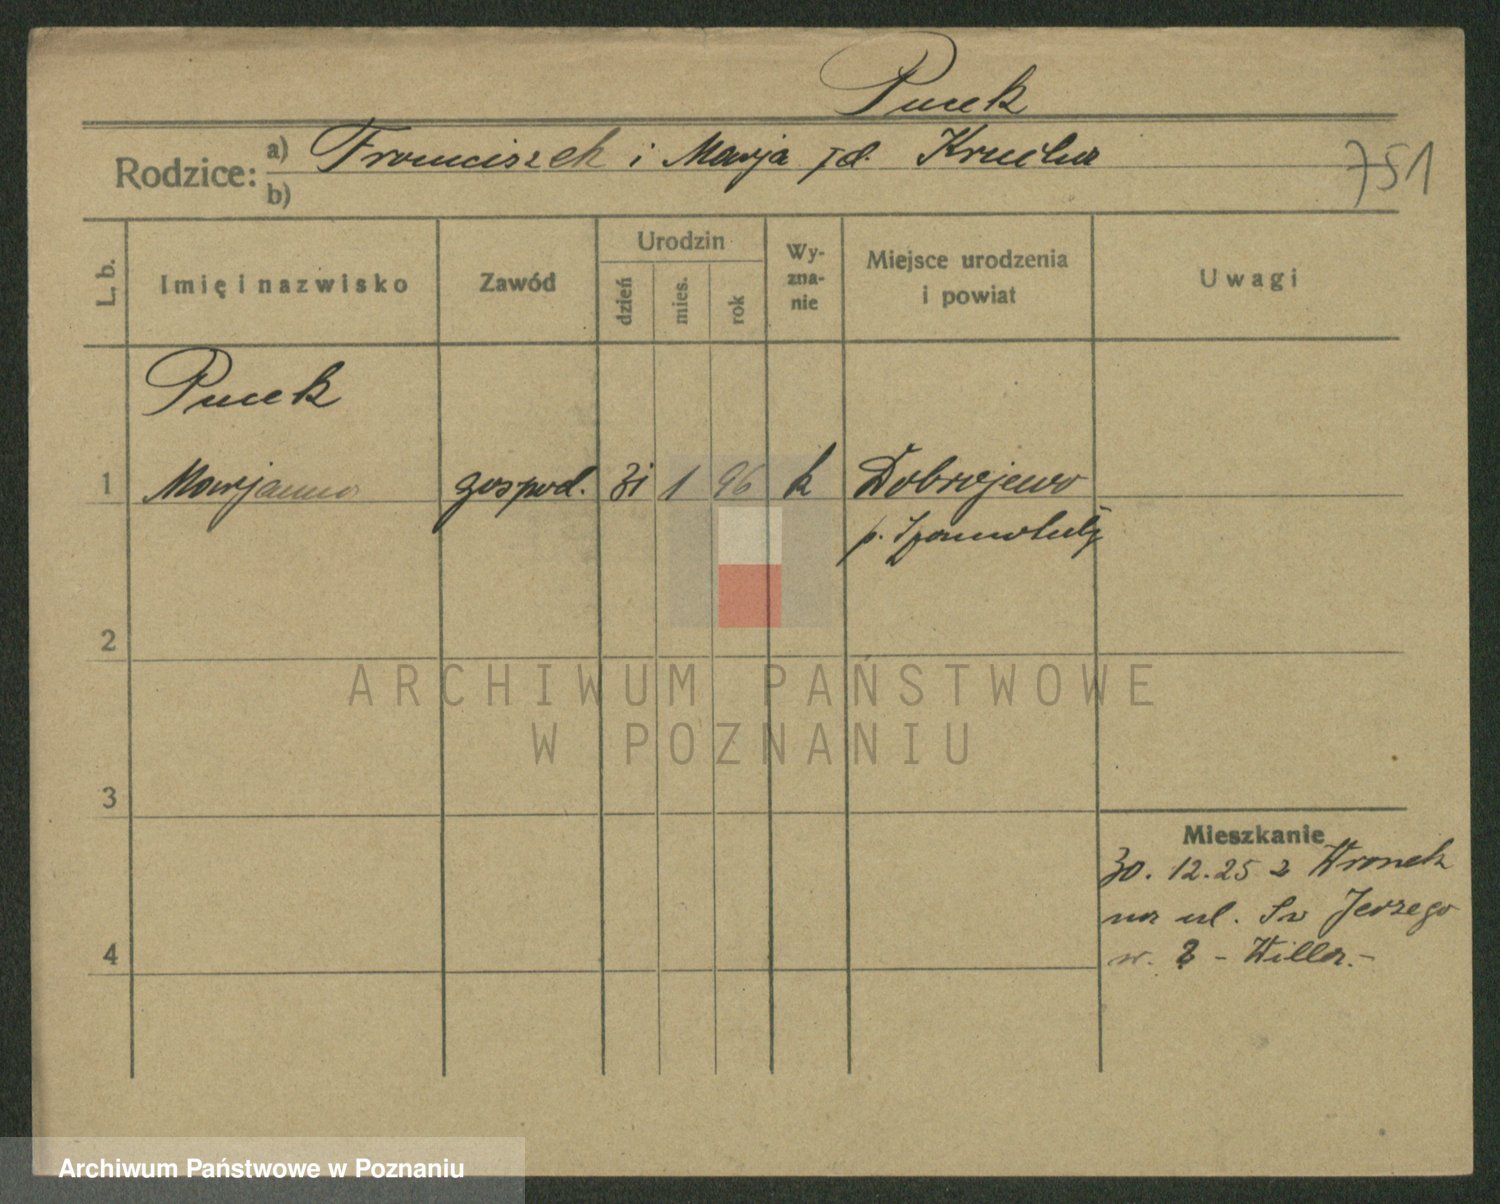 Pucek
Rodzice: a) Franciszek i Marja
b)
751
L. b.
Imię i nazwisko
Zawód
Urodzin
dzień
mies.
rok
Wy-
zna-
nie
Miejsce urodzenia
i powiat
Uwagi
Pucek
1 Marjanna gospod. 31 1 96 k Dobrojewo
p. Szamotuły
2
3
4
Mieszkanie
30. 12. 25 z Wronek
na ul. Św Jerzego
- Willa.-
ARCHIWUM PAŃSTWOWE
W POZNANIU
Archiwum Państwowe w Poznaniu